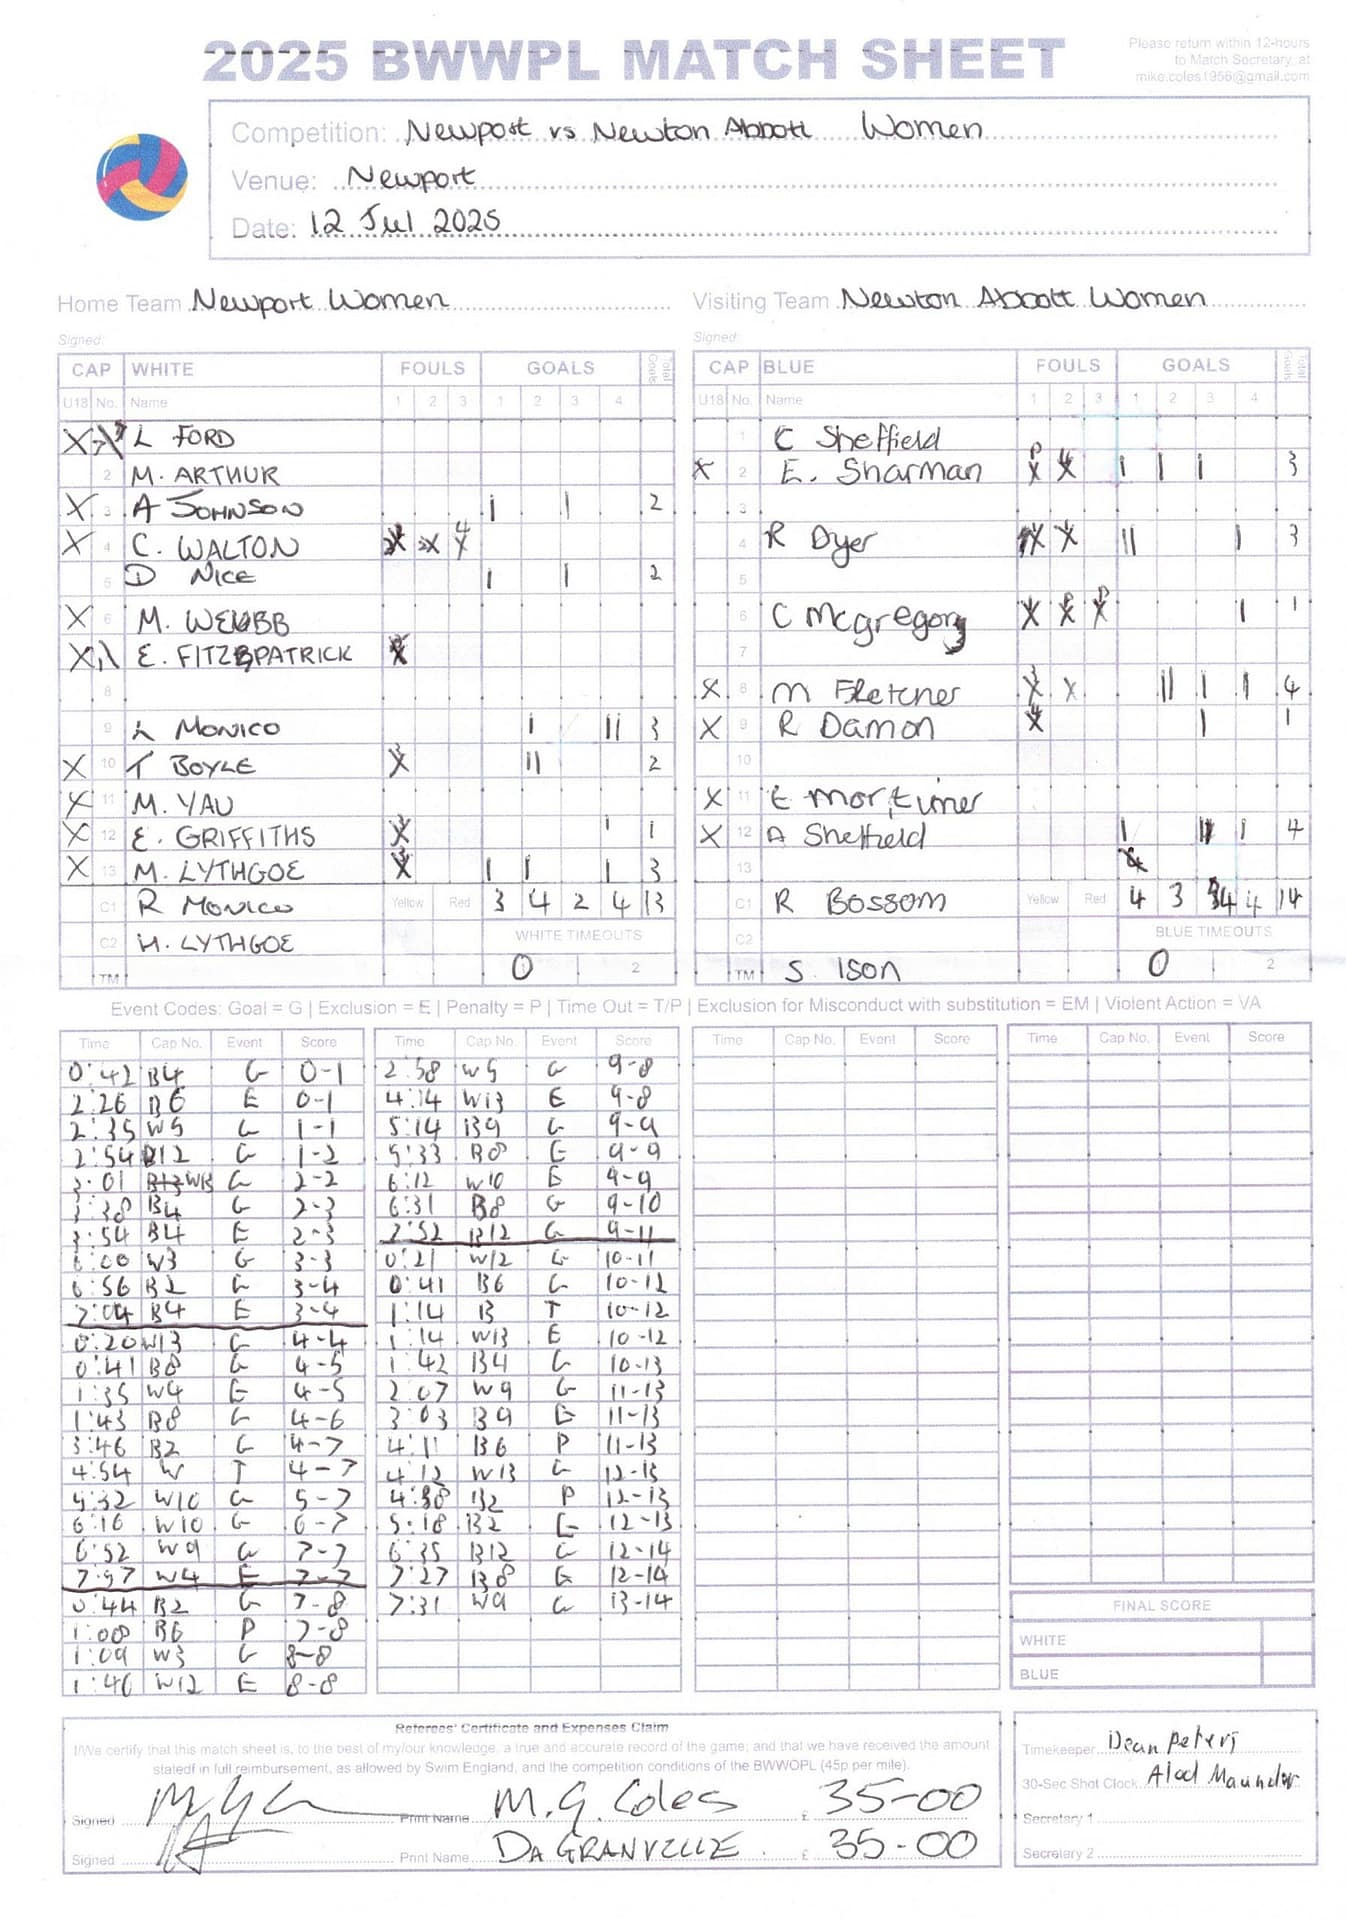 2025 BWWPL MATCH SHEET
Please return within 12-hours
to Match Secretary, at
mike.coles1956@gmail.com
Competition: Newport vs Newton Abbott Women
Venue: Newport
Date: 12 Jul 2025
Home Team Newport Women
Visiting Team Newton Abbott Women
Signed:
Signed:
CAP WHITE FOULS GOALS Total Goals
U18 No. Name 1 2 3 1 2 3 4
X L FORD
2 M. ARTHUR
X 3 A JOHNSON I I 2
X 4 C. WALTON X X X 4
5 D NICE I I 2
X 6 M. WEBB
X E. FITZPATRICK X
8
9 L MONICO I II 3
X 10 T BOYLE X II 2
X 11 M. YAU
X 12 E. GRIFFITHS X I 1
X 13 M. LYTHGOE X I I I 3
C1 R MONICO Yellow Red 3 4 2 4 13
C2 H. LYTHGOE WHITE TIMEOUTS
TM 0 2
CAP BLUE FOULS GOALS Total Goals
U18 No. Name 1 2 3 1 2 3 4
1 C Sheffield
X 2 E. Sharman X P X I I I 3
3
4 R Dyer X X II I 3
5
6 C Mcgregory X X P X P I 1
7
X 8 M Fletcher X X II I I 4
X 9 R Damon X I 1
10
X 11 E mortimer
X 12 A Sheffield I I 4
13
C1 R BOSSOM Yellow Red 4 3 4 4 14
C2 BLUE TIMEOUTS
TM S. ISON 0 2
Event Codes: Goal = G | Exclusion = E | Penalty = P | Time Out = T/P | Exclusion for Misconduct with substitution = EM | Violent Action = VA
Time Cap No. Event Score
0:42 B4 G 0-1
2:26 B6 E 0-1
2:35 W5 G 1-1
2:54 B12 G 1-2
3:01 W13 G 2-2
3:38 B4 G 2-3
3:54 B4 E 2-3
6:00 W3 G 3-3
6:56 B2 G 3-4
7:04 B4 E 3-4
0:20 W13 G 4-4
0:41 B8 G 4-5
1:35 W4 E 4-5
1:43 B8 G 4-6
3:46 B2 G 4-7
4:54 W T 4-7
5:32 W10 G 5-7
6:16 W10 G 6-7
6:52 W9 G 7-7
7:57 W4 E 7-7
0:44 B2 G 7-8
1:08 B6 P 7-8
1:09 W3 G 8-8
1:46 W12 E 8-8
Time Cap No. Event Score
2:58 W5 G 9-8
4:14 W13 E 9-8
5:14 B9 G 9-9
5:33 B8 E 9-9
6:12 W10 E 9-9
6:31 B8 G 9-10
7:52 B12 G 9-11
0:21 W12 G 10-11
0:41 B6 G 10-12
1:14 B T 10-12
1:14 W13 E 10-12
1:42 B4 G 10-13
2:07 W9 G 11-13
3:03 B9 E 11-13
4:11 B6 P 11-13
4:12 W13 G 12-13
4:58 B2 P 12-13
5:18 B2 E 12-13
6:35 B12 G 12-14
7:27 B8 G 12-14
7:31 W9 G 13-14
Time Cap No. Event Score
Time Cap No. Event Score
FINAL SCORE
WHITE
BLUE
Referees' Certificate and Expenses Claim
I/We certify that this match sheet is, to the best of my/our knowledge, a true and accurate record of the game; and that we have received the amount
stated in full reimbursement, as allowed by Swim England, and the competition conditions of the BWWOPL (45p per mile).
Signed Print Name M.G. Coles £ 35-00
Signed Print Name DA GRANVILLE £ 35-00
Timekeeper Dean Peters
30-Sec Shot Clock Alod Maunder
Secretary 1
Secretary 2